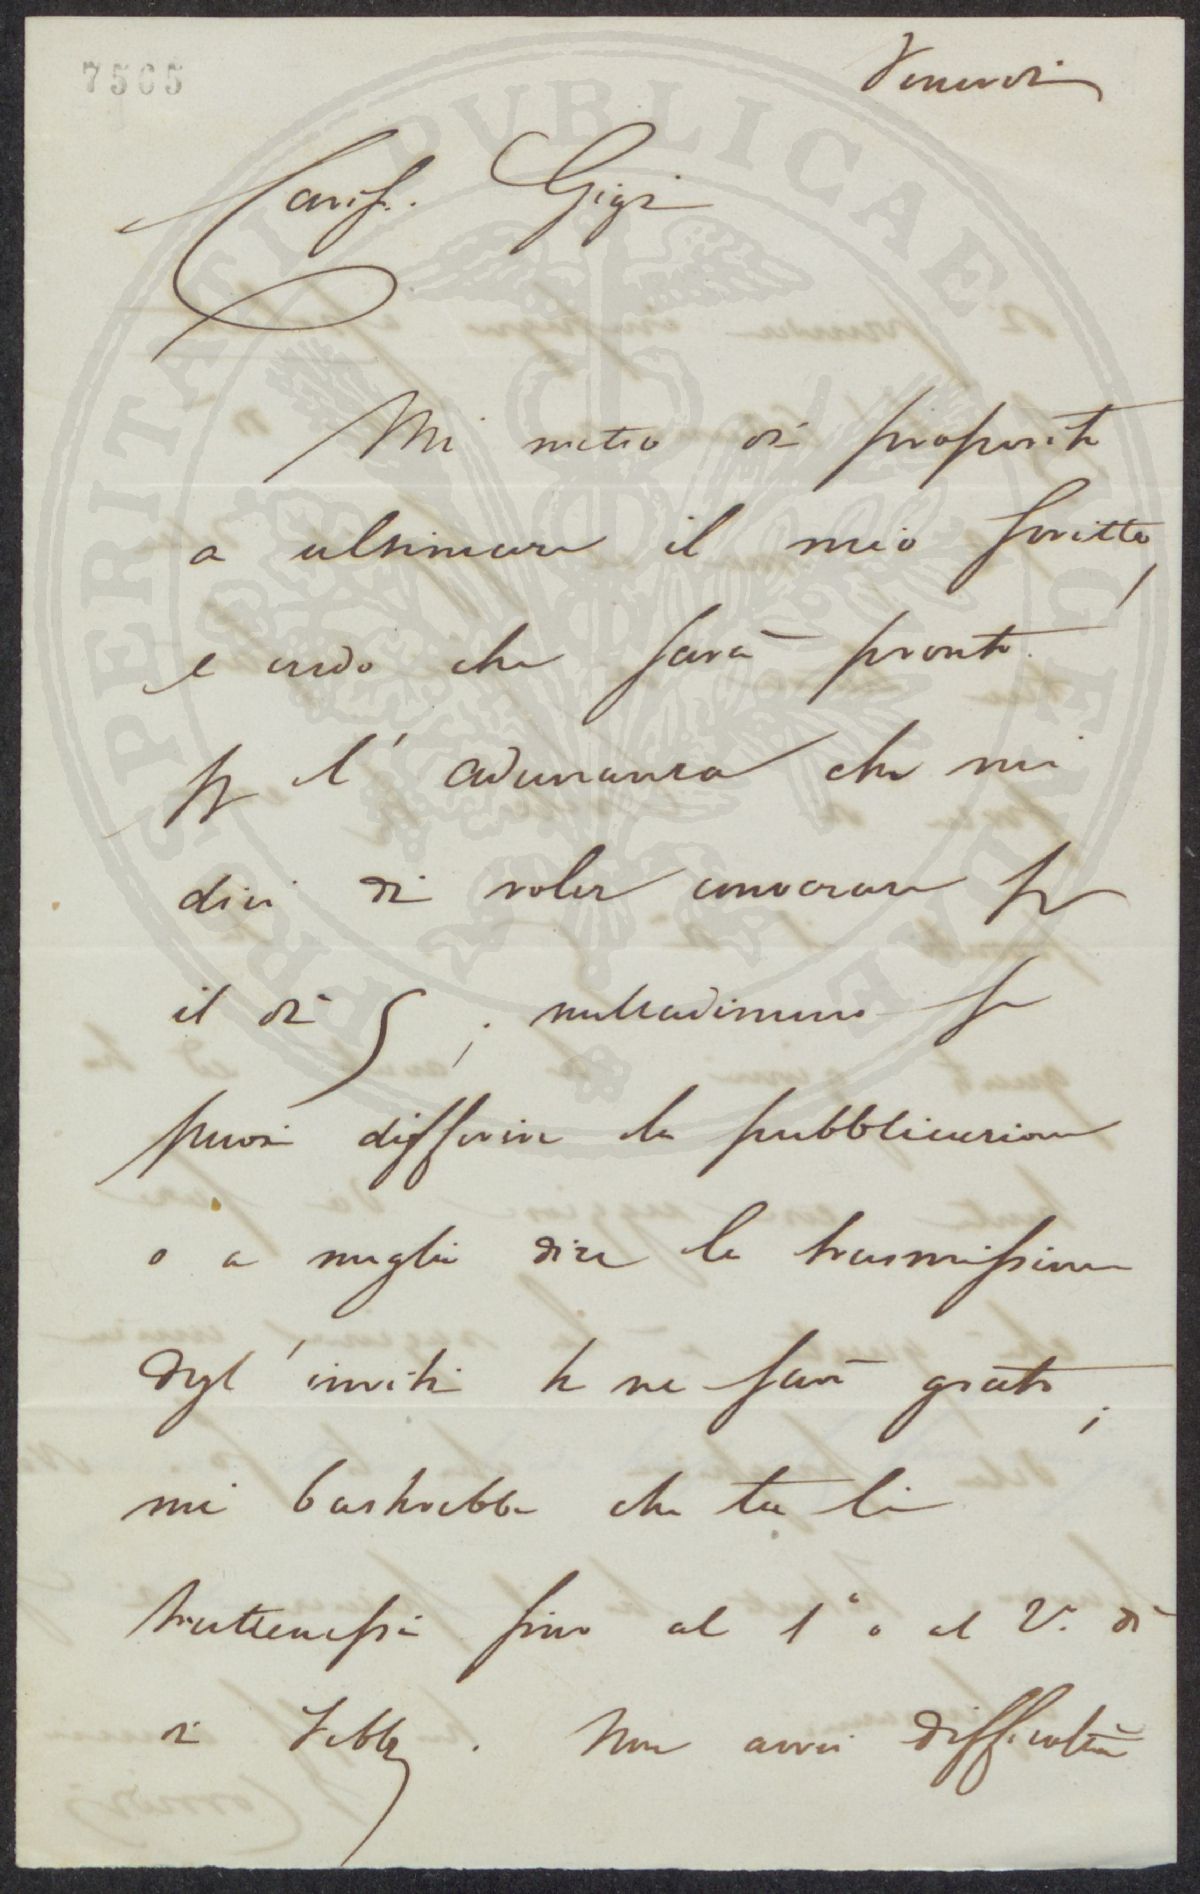 7565
Venerdì
Cariss. Gigi
Mi metto di proposito
a ultimare il mio scritto,
e credo che sarà pronto
pr l'adunanza che mi
dici di voler convocare pr
il dì 5; nulladimeno se
puoi differire la pubblicazione
o a meglio dire la trasmissione
degl'inviti te ne sarò grato;
mi basterebbe che tu li
trattenessi fino al 1° o al 2°. dì
di Febb. Non avrei difficoltà
PROSPERITATI PUBLICAE AUGENDAE